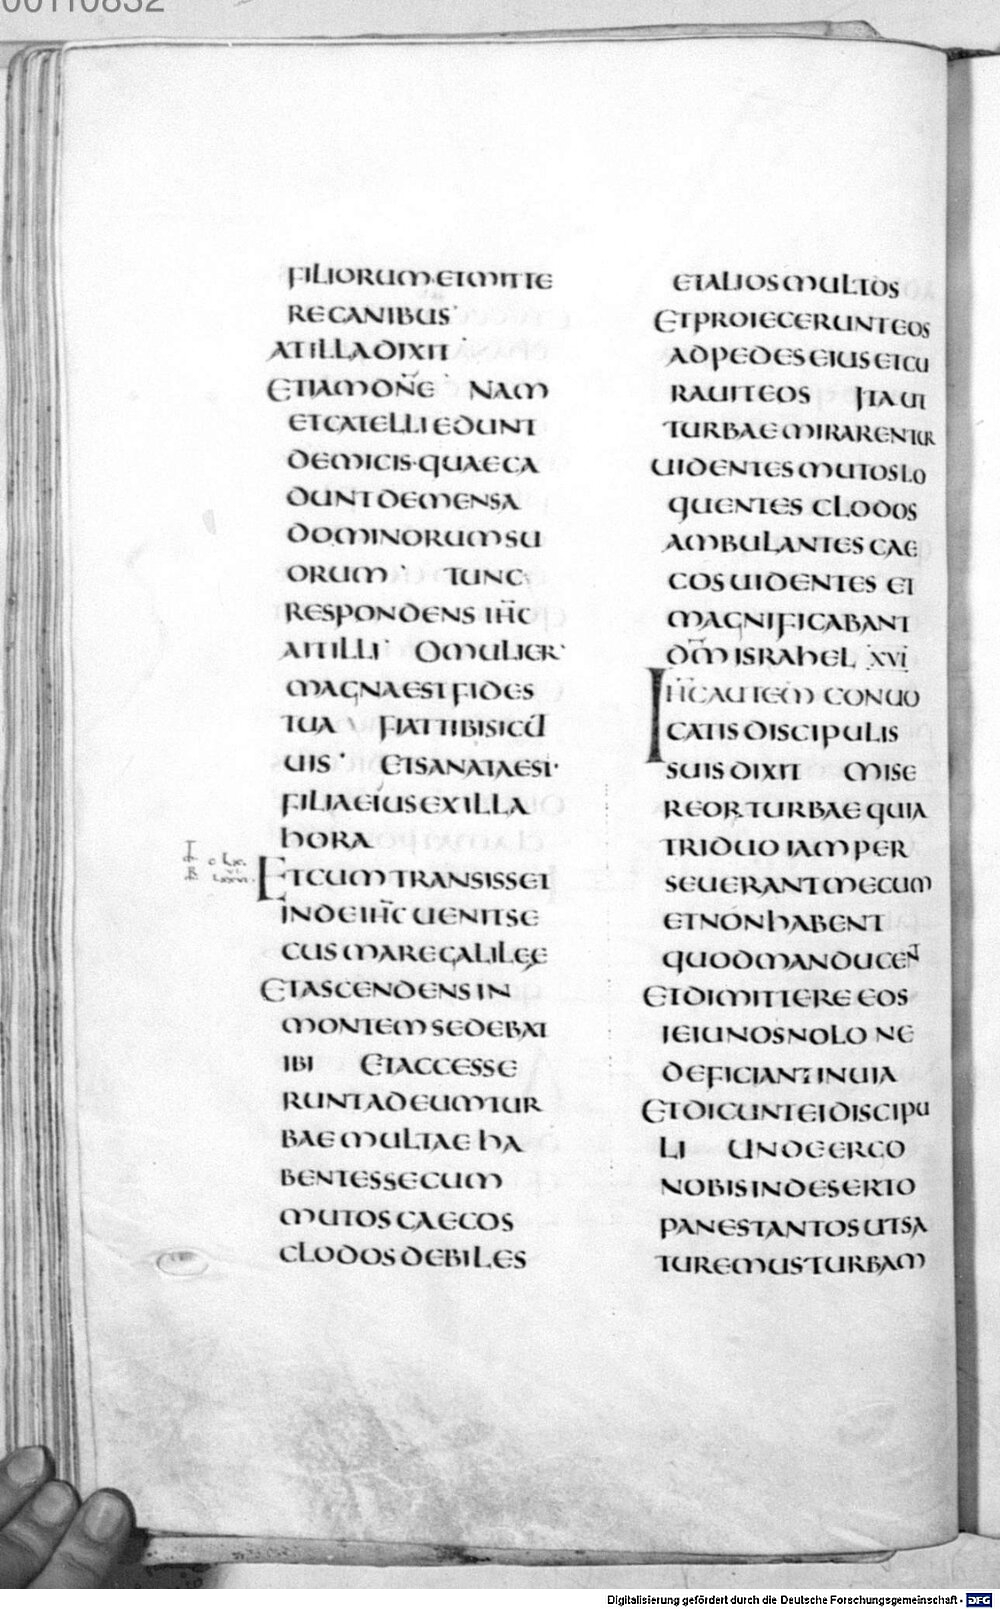 00110832
FILIORUM·ETMITTE
RECANIBUS·
ATILLADIXIT·
ETIAMDÑE· NAM
ETCATELLIEDUNT
DEMICIS·QUAECA
DUNTDEMENSA
DOMINORUMSU
ORUM· TUNC·
RESPONDENS IHC̄
AITILLI OMULIER·
MAGNAESTFIDES
TUA FIATTIBISICŪ
UIS· ETSANATAEST·
FILIAEIUSEXILLA
hORA
ETCUMTRANSISSET
INDEIHC̄UENITSE
CUSMAREGALILEE
ETASCENDENSIN
MONTEMSEDEBAT
IBI ETACCESSE
RUNTADEUMTUR
BAEMULTAEhA
BENTESSECUM
MUTOSCAECOS
CLODOSDEBILES
ETALIOSMULTOS
ETPROIECERUNTEOS
ADPEDESEIUSETCU
RAUITEOS ITAUT
TURBAEMIRARENTUR
UIDENTESMUTOSLO
QUENTES CLODOS
AMBULANTESCAE
COSUIDENTES ET
MAGNIFICABANT
DM̄ISRAhEL XVI
IHC̄AUTEM CONUO
CATISDISCIPULIS
SUISDIXIT MISE
REOR·TURBAEQUIA
TRIDUO IAMPER
SEUERANTMECUM
ETNONhABENT
QUODMANDUCENT
ETDIMITTEREEOS
IEIUNOSNOLO NE
DEFICIANTINUIA
ETDICUNTEIDISCIPU
LI UNDEERGO
NOBISINDESERTO
PANESTANTOSUTSA
TUREMUSTURBAM
Digitalisierung gefördert durch die Deutsche Forschungsgemeinschaft - DFG